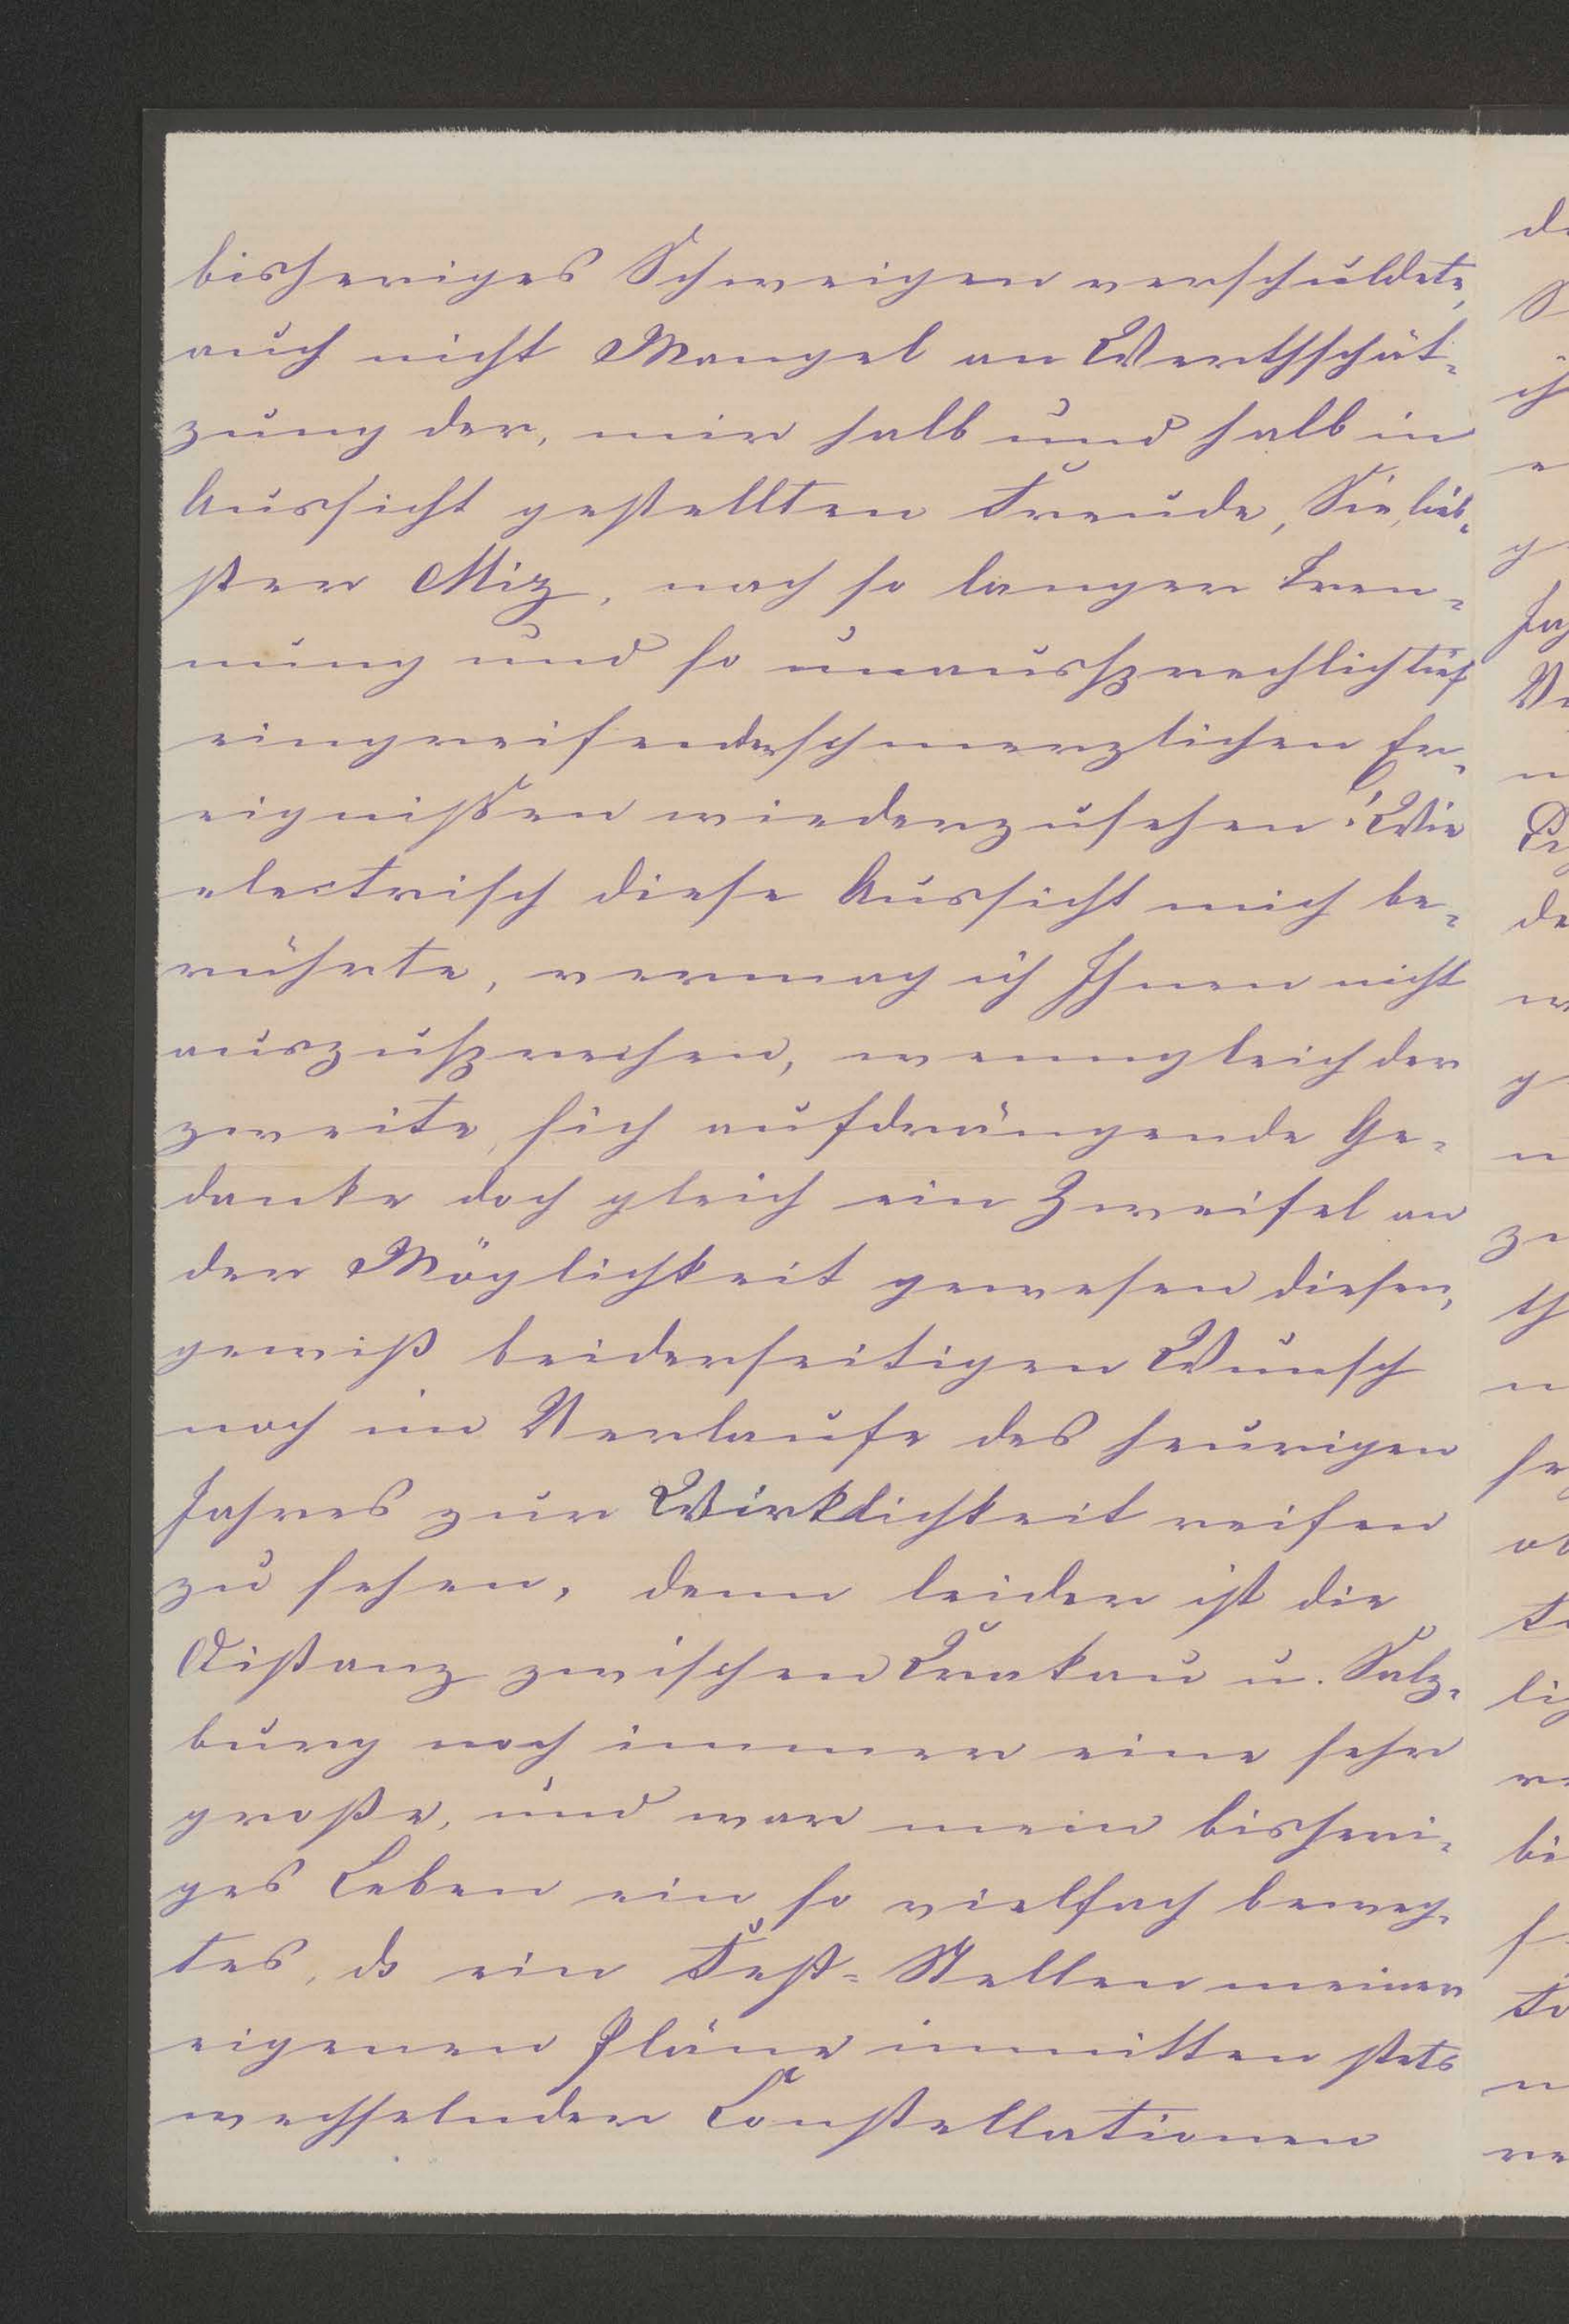 bisheriges Schweigen verschuldete,
auch nicht Mangel an Werthschät-
zung der, mir halb und halb in
Aussicht gestellten Freude, Sie, lieb-
ster Miz, nach so langer Tren-
nung und so unaussprechlich tief
eingreifenden schmerzlichen Er-
eignißen wiederzusehen! Wie
electrisch diese Aussicht mich be-
rührte, vermag ich Ihnen nicht
auszusprechen, wenngleich der
zweite, sich aufdrängende Ge-
danke doch gleich ein Zweifel an
der Möglichkeit gewesen diesen,
gewiß beiderseitigen Wunsch
noch im Verlaufe des heurigen
Jahres zur Wirklichkeit reifen
zu sehen, denn leider ist die
Distanz zwischen Krakau u. Salz-
burg noch immer eine sehr
große, und war mein bisheri-
ges Leben ein so vielfach beweg-
tes, ds ein Fest-Stellen meiner
eigenen Pläne inmitten stets
wechselnder Constellationen